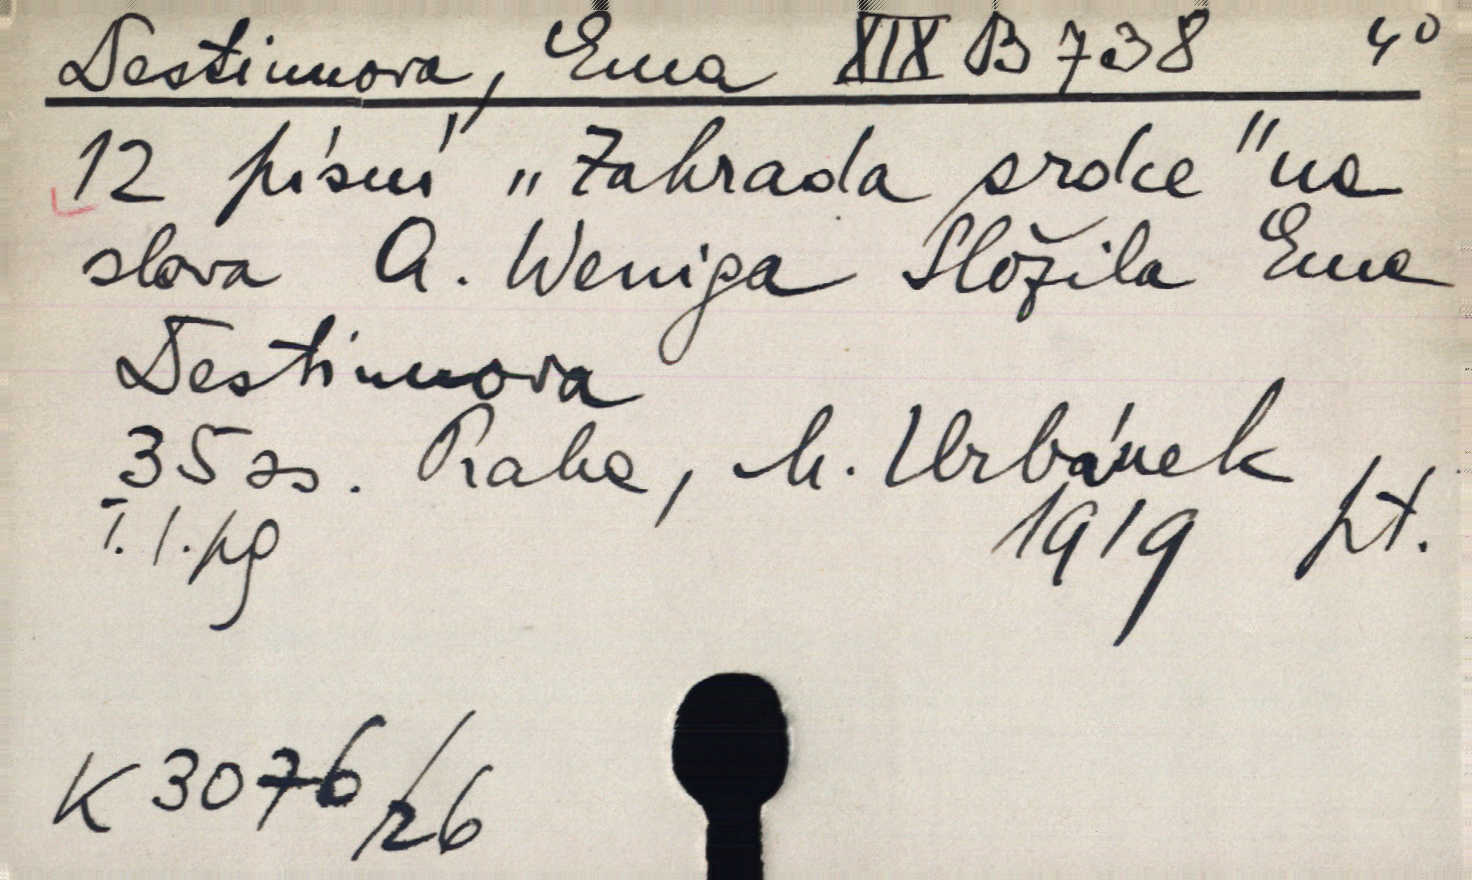 Destinnova, Ema XIX B 738 4°
12 písní „Zahrada srdce" na
slova A. Weniga Složila Ema
Destinnova
35 ss. Praha, M. Urbánek
1919 pt.
T. 1. pg
K 3076/26